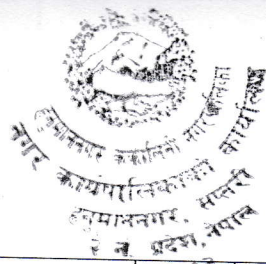 हनुमाननगर कंकालिनी नगरपालिका
नगर कार्यपालिकाको कार्यालय
हनुमाननगर, सप्तरी
प्रदेश, नेपाल